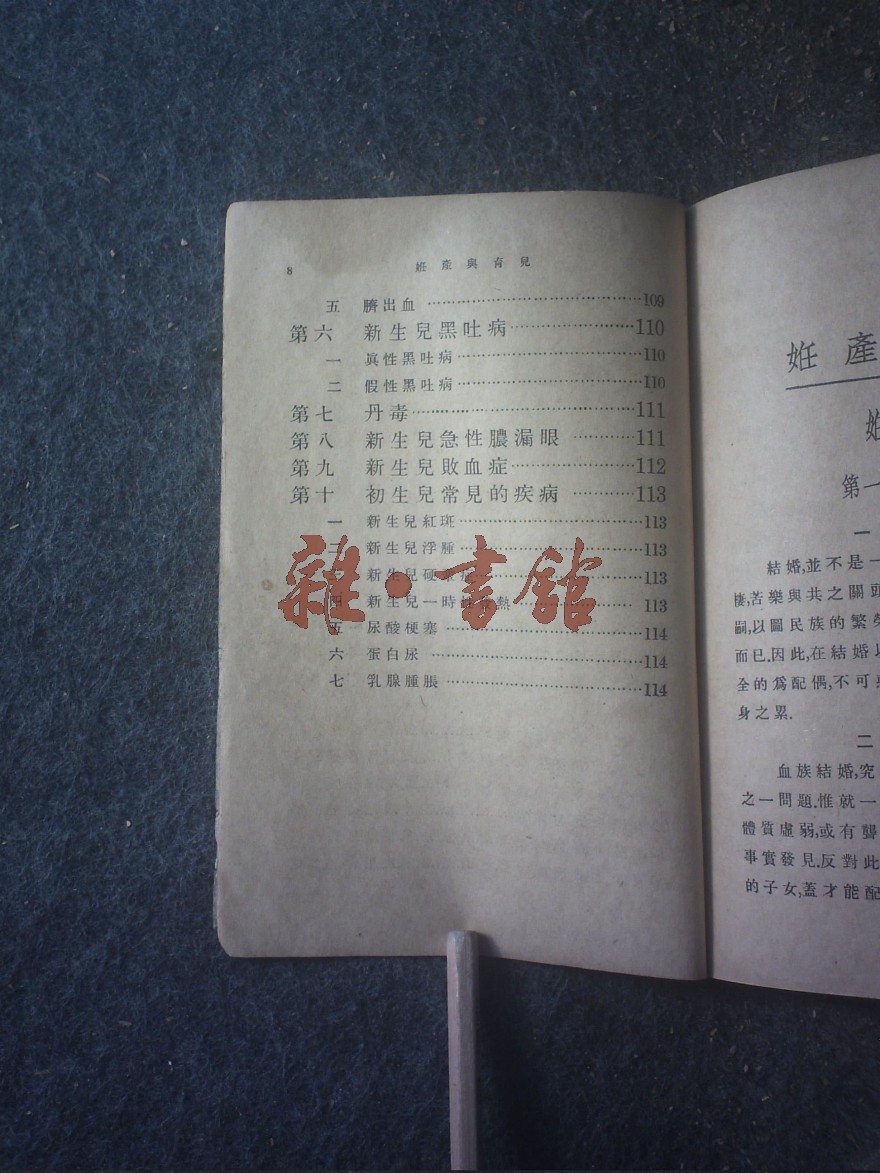 8 妊產與育兒
五 臍出血 109
第六 新生兒黑吐病 110
一 眞性黑吐病 110
二 假性黑吐病 110
第七 丹毒 111
第八 新生兒急性膿漏眼 111
第九 新生兒敗血症 112
第十 初生兒常見的疾病 113
一 新生兒紅斑 113
二 新生兒浮腫 113
新生兒硬 113
四 新生兒一時性 熱 113
五 尿酸梗塞 114
六 蛋白尿 114
七 乳腺腫脹 114
雜·書館
妊產
第一
一
結婚,並不是一
棲,苦樂與共之關頭
嗣,以圖民族的繁榮
而已.因此,在結婚以
全的爲配偶,不可
身之累.
二
血族結婚,究
之一問題.惟就一
體質虛弱,或有聾
事實發見.反對此
的子女,蓋才能配